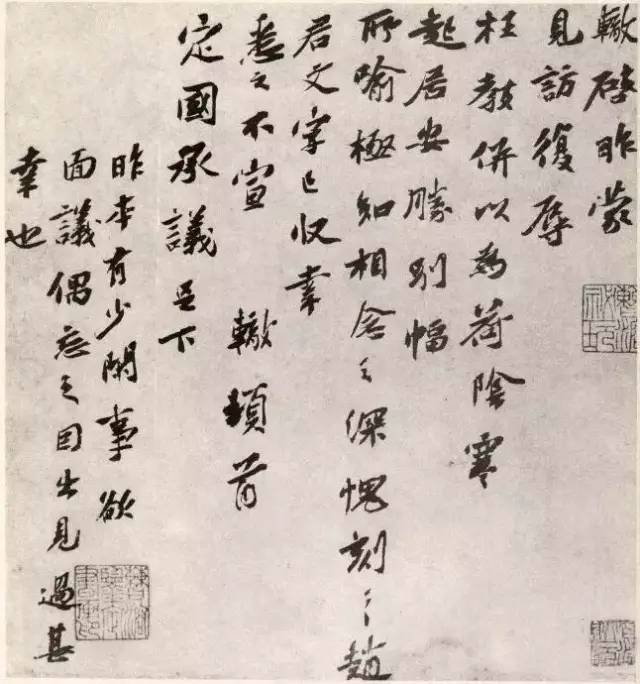 轍啓昨蒙
見訪復辱
枉教併以為荷陰寒
起居安勝別幅
所喻極知相念之深愧刻々趙
君文字已収幸
悉之不宣 轍頓首
定國承議足下
昨本有少閑事欲
面議偶忘之因出見過甚
幸也